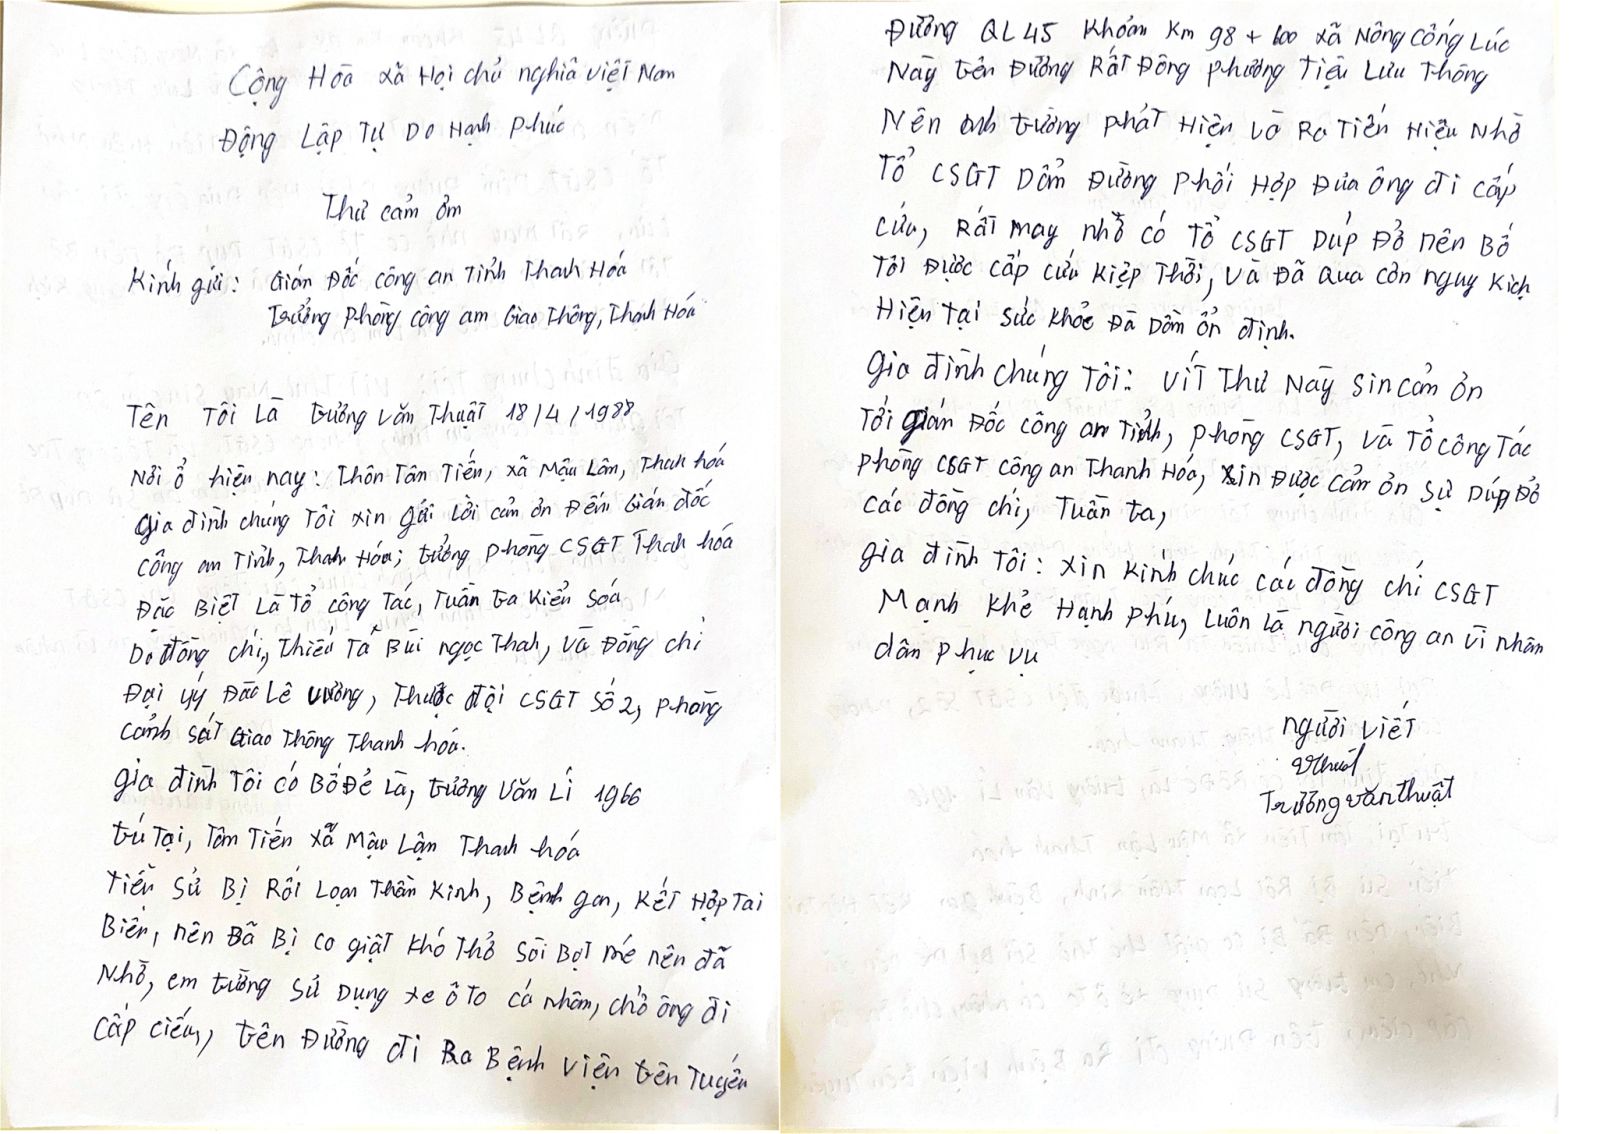 Cộng Hòa xã Hội chủ nghĩa việt Nam
Động Lập Tự Do Hạnh Phúc
Thư cảm ơm
Kính gửi: Gián Đốc công an Tỉnh Thanh Hóa
Trưởng Phòng công am Giao Thông, Thanh Hóa
Tên Tôi Là trương văn Thuật 18/4/1988
Nơi ở hiện nay: Thôn Tân Tiến, xã Mậu Lâm, Thanh hóa
gia đình chúng Tôi xin gửi lời cảm ơn Đến Gián đốc
công an Tỉnh, Thanh Hóa; trưởng phòng CSGT Thanh hóa
Đặc Biệt Là Tổ công Tác, Tuần ta Kiển Soá
Do đồng chí, Thiếu Tá Bùi ngọc Thanh, và Đồng chí
Đại úy Đắc Lê vương, Thuộc đội CSGT Số 2, phòng
cảnh sát Giao Thông Thanh hóa.
gia đình Tôi có Bố Đẻ Là, trương Văn Lí 1966
trú Tại, Tâm Tiến xã Mậu Lâm Thanh hóa
Tiền sử Bị Rối Loạn Thần Kinh, Bệnh gan, Kết Hợp Tai
Biên, nên Đã Bị co giật khó Thở Sỗi Bọt mé nên đã
Nhờ, em trường sử Dụng xe ô tô cá nhâm, chở ông đi
cấp ciếu, trên Đường đi Ra Bệnh viện trên Tuyến
Đường QL45 Khoảm Km 98 + 600 xã Nông Cống Lúc
Này trên Đường Rất Đông phương Tiệu Lưu Thông
Nên anh trường phát Hiện và Ra Tiến Hiệu Nhờ
Tổ CSGT Dẩm Đường Phối Hợp Đưa ông đi cấp
cứu, Rất may nhờ có Tổ CSGT Dúp Đỡ nên Bố
Tôi Được cấp cứu Kiệp Thời, và Đã Qua cơn nguy Kịch
Hiện tại Sức khỏe Đã Dầm ổn định.
gia đình chúng Tôi: viết Thư Này Sin cảm ơn
Tới gián Đốc công an Tỉnh, phòng CSGT, và Tổ công Tác
phòng CSGT công an Thanh Hóa, xin Được cảm ơn sự Dúp Đỡ
các đồng chí, Tuần ta,
gia đình Tôi: xin Kính chúc các đồng chí CSGT
Mạnh Khẻ Hạnh Phú, Luôn Là người công an vì nhân
dân phục vụ
người viết
Thuật
Trương văn Thuật